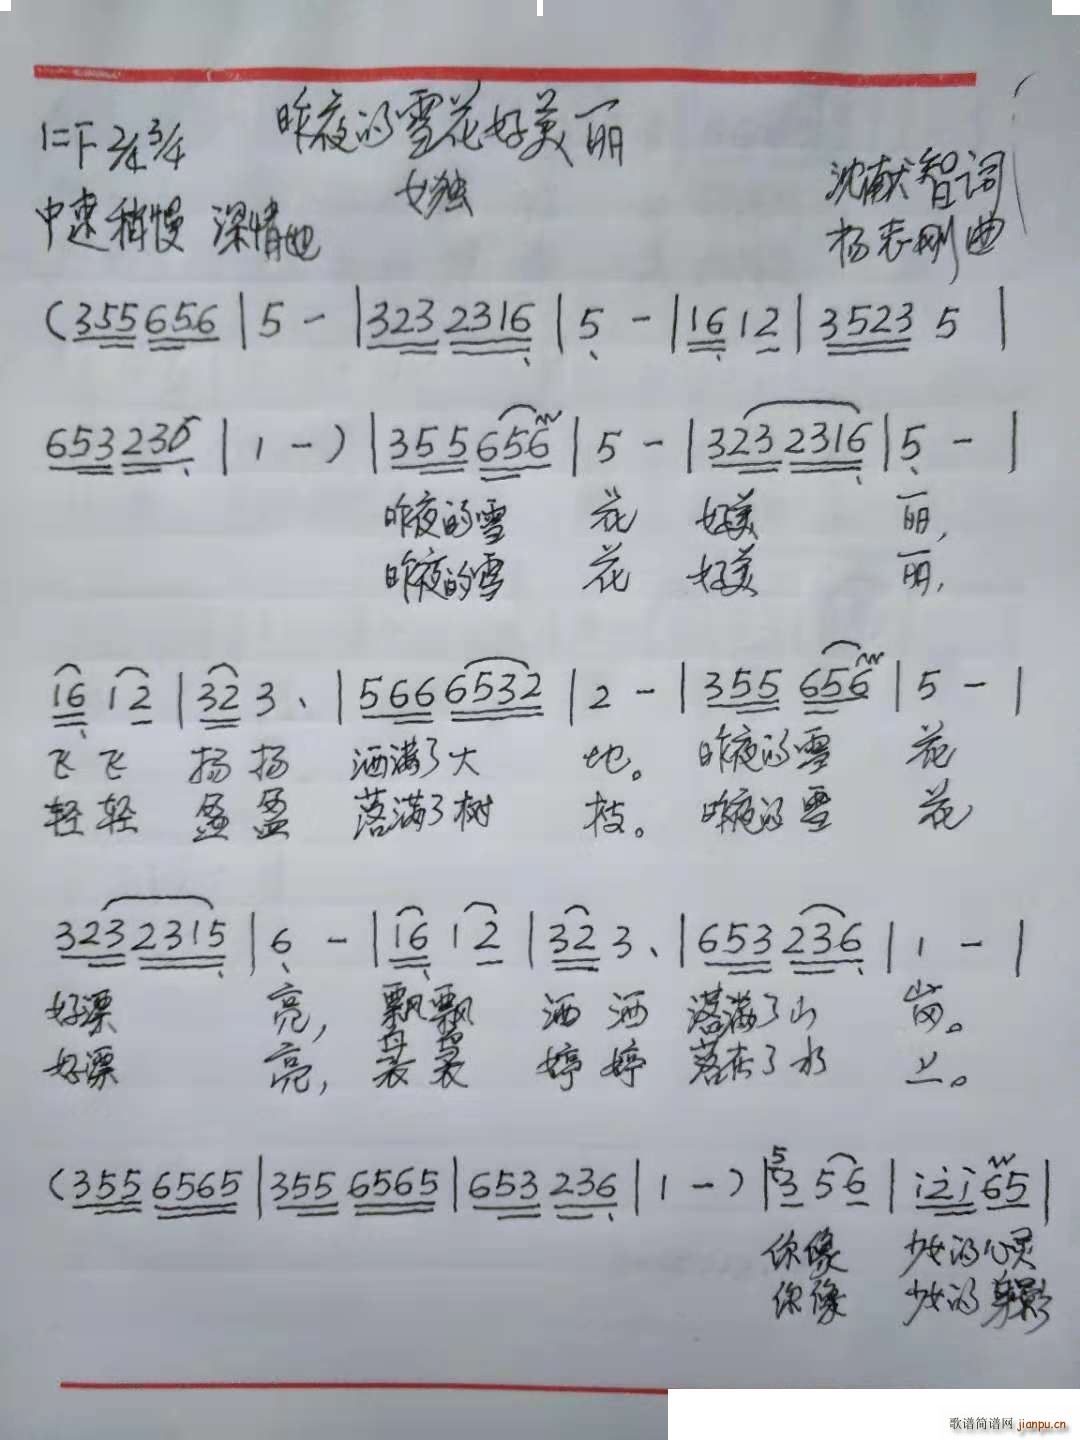 昨夜的雪花好美丽
1=F 2/4 3/4
女独
中速稍慢 深情地
沈献智词
杨志刚曲
(355 656 | 5 - | 323 2316 | 5 - | 16 12 | 3523 5 |
653 236 | 1 - ) | 355 656 | 5 - | 323 2316 | 5 - |
昨夜的雪 花 好美 丽,
昨夜的雪 花 好美 丽,
16 12 | 32 3. | 566 6532 | 2 - | 355 656 | 5 - |
飞飞 扬扬 洒满了大 地。 昨夜的雪 花
轻轻 盈盈 落满了树 枝。 昨夜的雪 花
323 2315 | 6 - | 16 12 | 32 3. | 653 236 | 1 - |
好漂 亮, 飘飘 洒洒 落满了山 岗。
好漂 亮, 袅袅 婷婷 落在了水 上。
(355 6565 | 355 6565 | 653 236 | 1 - ) | 5 3 56 | i2i 65 |
你像 少女的心灵
你像 少女的身影
歌谱简谱网 jianpu.cn